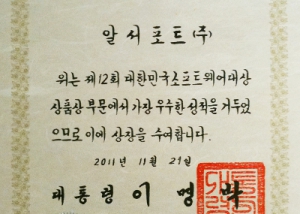 알서포트 (주)
위는 제12회 대한민국소프트웨어대상
상품상 부문에서 가장 우수한 성적을 거두었
으므로 이에 상장을 수여합니다.
2011년 11월 29일
대통령 이 명 박